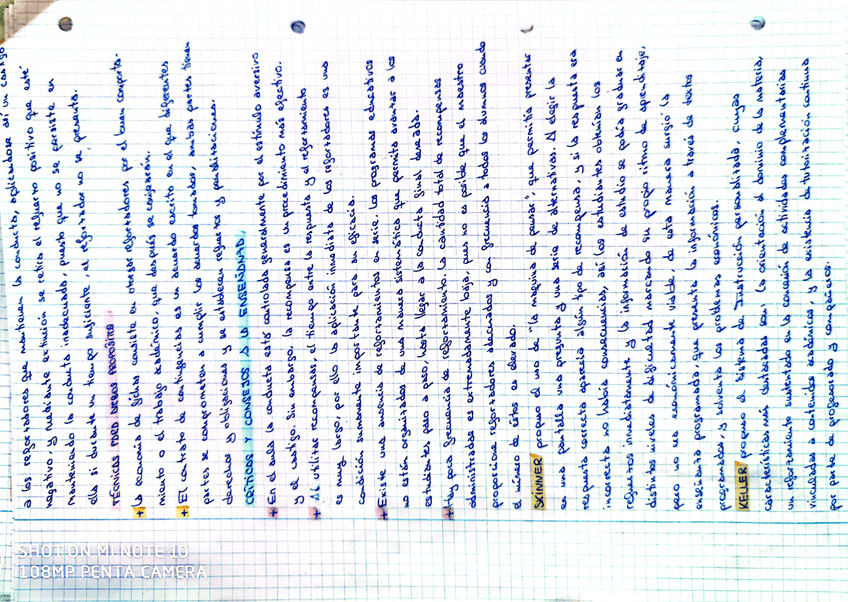 a los reforzadores que mantienen la conducta, aplicándose así un castigo
negativo, y mediante extinción se retira el refuerzo positivo que esté
manteniendo la conducta inadecuada, puesto que no se persiste en
ella si durante un tiempo suficiente, el reforzador no se presenta.
TÉCNICAS PARA AMBOS PROPÓSITOS
+ La economía de fichas consiste en otorgar reforzadores por el buen comporta-
miento o el trabajo académico, que después se canjearán.
+ El contrato de contingencias es un acuerdo escrito en el que diferentes
partes se comprometen a cumplir los acuerdos tomados, ambas partes tienen
derechos y obligaciones y se establecen refuerzos y penalizaciones.
CRÍTICAS Y CONSEJOS A LA ENSEÑANZA.
+ En el aula la conducta está controlada generalmente por el estímulo aversivo
y el castigo. Sin embargo, la recompensa es un procedimiento más efectivo.
+ Al utilizar recompensas, el tiempo entre la respuesta y el reforzamiento
es muy largo, por ello la aplicación inmediata de los reforzadores es una
condición sumamente importante para su eficacia.
+ Existe una ausencia de reforzamientos en serie. Los programas educativos
no están organizados de una manera sistemática que permita avanzar a los
estudiantes paso a paso, hasta llegar a la conducta final deseada.
+ Hay poca frecuencia de reforzamiento. La cantidad total de recompensas
administradas es extremadamente baja, pues no es posible que el maestro
proporcione reforzadores adecuados y con frecuencia a todos los alumnos cuando
el número de éstos es elevado.
SKINNER propuso el uso de "la máquina de pensar", que permitía presentar
en una pantalla una pregunta y una serie de alternativas. Al elegir la
respuesta correcta aparecía algún tipo de recompensa, y si la respuesta era
incorrecta no había consecuencias, así los estudiantes obtenían los
refuerzos inmediatamente y la información de estudio se podía graduar en
distintos niveles de dificultad marcando su propio ritmo de aprendizaje,
pero no era económicamente viable, de esta manera surgió la
enseñanza programada, que presenta la información a través de textos
programados, y solventa los problemas económicos.
KELLER propuso el Sistema de Instrucción personalizada, cuyas
características más destacadas son: la orientación al dominio de la materia,
un reforzamiento sustentado en la conexión de actividades complementarias
vinculadas a contenidos académicos, y la existencia de tutorización continua
por parte de profesorado y compañeros.
SHOT ON MI NOTE 10
108MP PENTA CAMERA